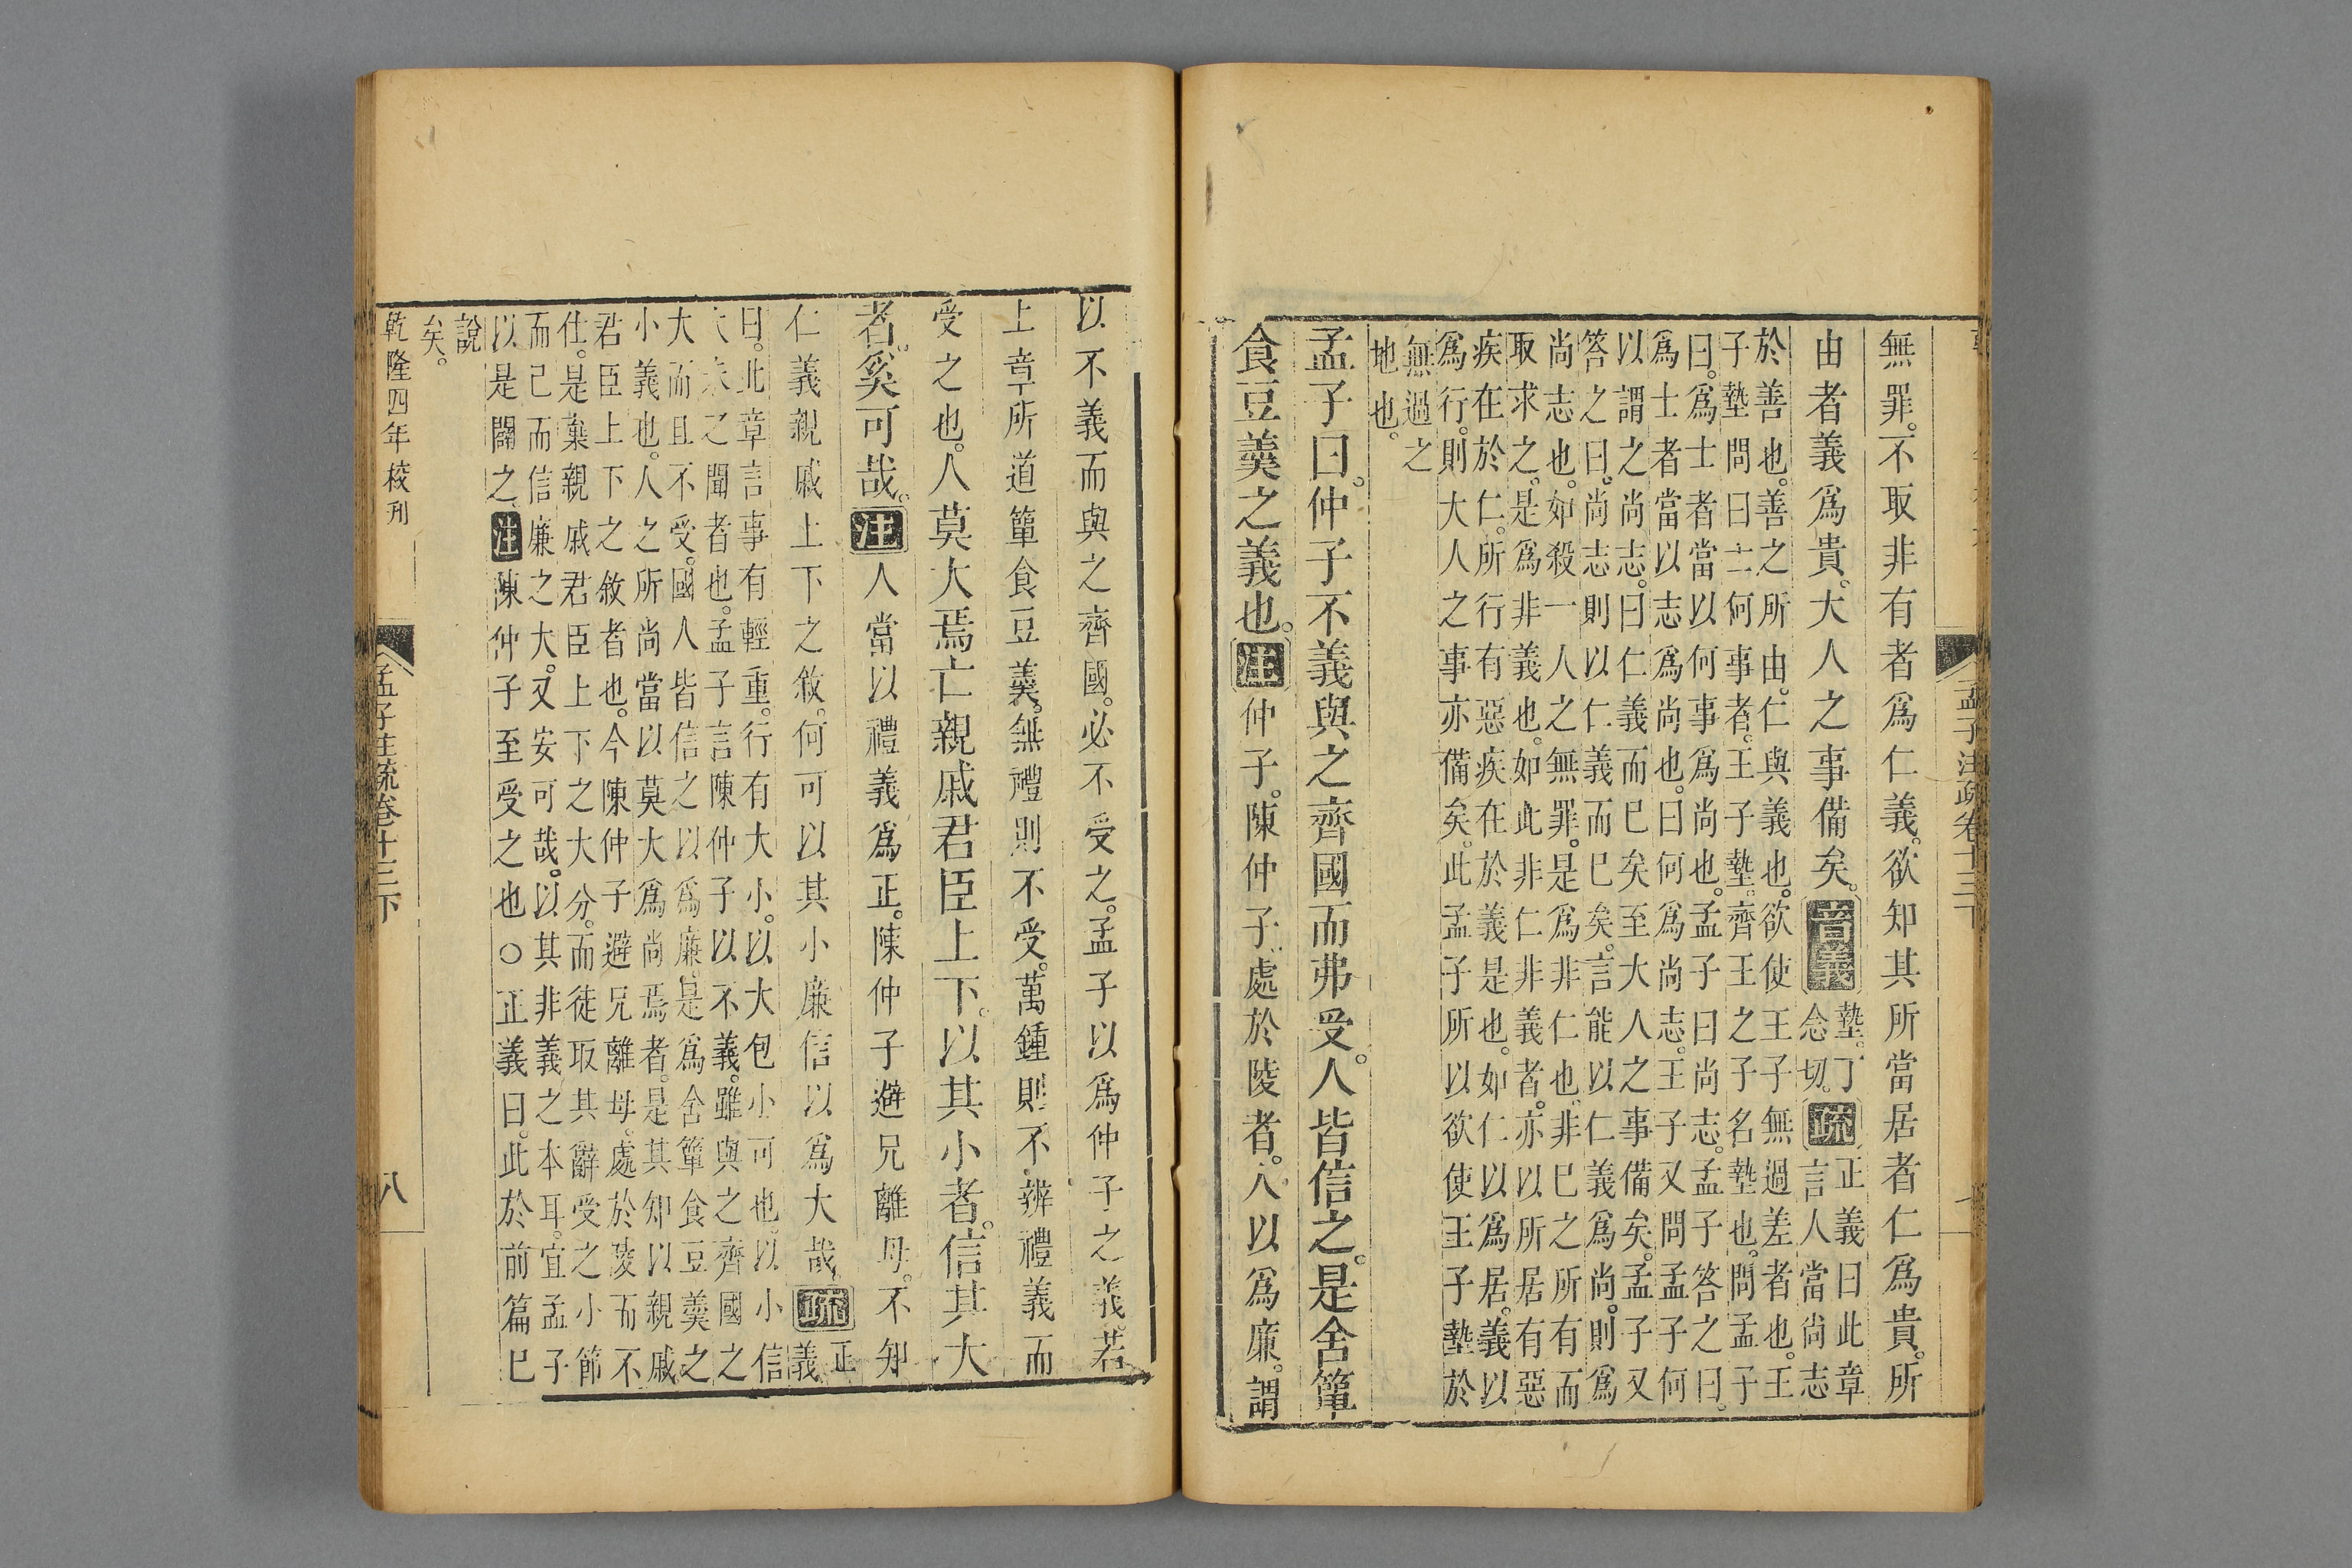 孟子注疏卷十三下
無罪。不取非有者爲仁義。欲知其所當居者仁爲貴。所
由者義爲貴。大人之事備矣。音義墊。丁念切。疏正義曰此章言人當尚志
於善也。善之所由。仁與義也。欲使王子無過差者也。王
子墊問曰士何事者。王子墊。齊王之子名墊也。問孟子
曰。爲士者當以何事爲尚也。孟子曰尚志。孟子答之曰。
爲士者當以志爲尚也。曰何爲尚志。王子又問孟子何
以謂之尚志。曰仁義而巳矣至大人之事備矣。孟子又
答之曰。尚志則以仁義而巳矣。言能以仁義爲尚。則爲
尚志也。如殺一人之無罪。是爲非仁也。非巳之所有而
取求之。是爲非義也。如此非仁非義者。亦以所居有惡
疾在於仁。所行有惡疾在於義是也。如仁以爲居。義以
爲行。則大人之事亦備矣。此孟子所以欲使王子墊於
無過之
地也。
孟子曰。仲子不義與之齊國而弗受。人皆信之。是舍簞
食豆羹之義也。注仲子。陳仲子。處於陵者。人以爲廉。謂
以不義而與之齊國。必不受之。孟子以爲仲子之義。若
上章所道簞食豆羹。無禮則不受。萬鍾則不辨禮義而
受之也。人莫大焉亡親戚君臣上下。以其小者。信其大
者。奚可哉。注人當以禮義爲正。陳仲子避兄離母。不知
仁義親戚上下之敘。何可以其小廉信以爲大哉。疏正義
曰。此章言事有輕重。行有大小。以大包小可也。以小信
大未之聞者也。孟子言陳仲子以不義。雖與之齊國之
大而且不受。國人皆信之以爲廉。是爲舍簞食豆羹之
小義也。人之所尚當以莫大爲尚焉者。是其知以親戚
君臣上下之敘者也。今陳仲子避兄離母。處於陵而不
仕。是棄親戚君臣上下之大分。而徒取其辭受之小節
而已而信廉之大。又安可哉。以其非義之本耳。宜孟子
以是闢之。注陳仲子至受之也○正義曰。此於前篇巳
說
矣。
乾隆四年校刊
孟子注疏卷十三下
八